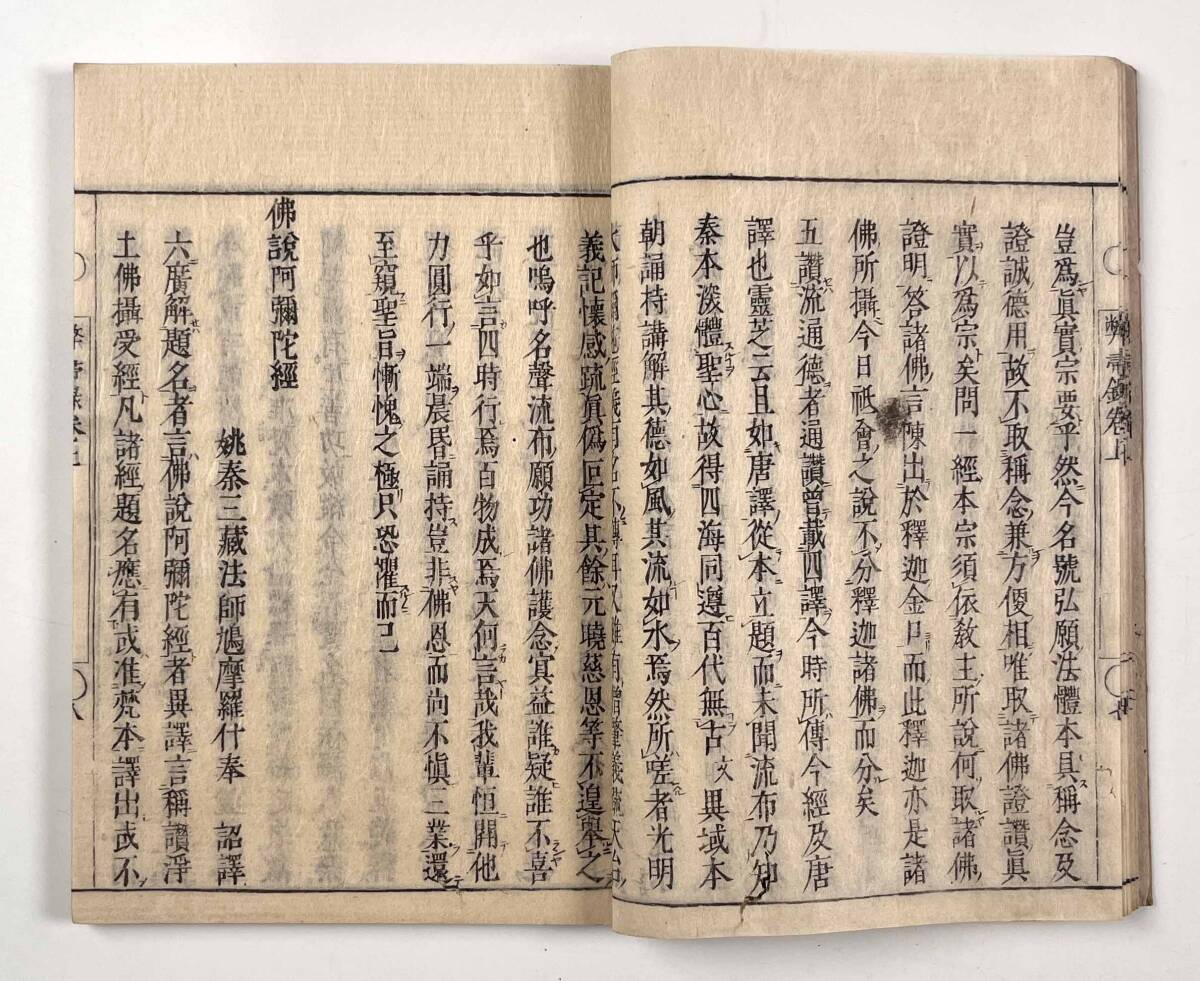 豈爲眞實宗要乎然今名號弘願法體本具稱念及
證誠德用故不取稱念兼方便相唯取諸佛證讚眞
實以爲宗矣問一經本宗須依敎主所說何取諸佛
證明答諸佛言陳出於釋迦金口而此釋迦亦是諸
佛所攝今日祇會之說不分釋迦諸佛而分矣
五讚流通德者通讚曾載四譯今時所傳今經及唐
譯也靈芝云且如唐譯從本立題而未聞流布乃知
秦本深體聖心故得四海同遵百代無古文異域本
朝誦持講解其德如風其流如水焉然所嗟者光明
義記懷感疏眞僞叵定其餘元曉慈恩等不遑擧之
也嗚呼名聲流布願功諸佛護念冥益誰疑誰不喜
乎如言四時行焉百物成焉天何言哉我輩恒開他
力圓行一端晨昏誦持豈非佛恩而尚不愼三業還
至窺聖旨慚愧之極只恐懼而已
佛說阿彌陀經
姚秦三藏法師鳩摩羅什奉 詔譯
六廣解題名者言佛說阿彌陀經者異譯言稱讚淨
土佛攝受經凡諸經題名應有或准梵本譯出或不